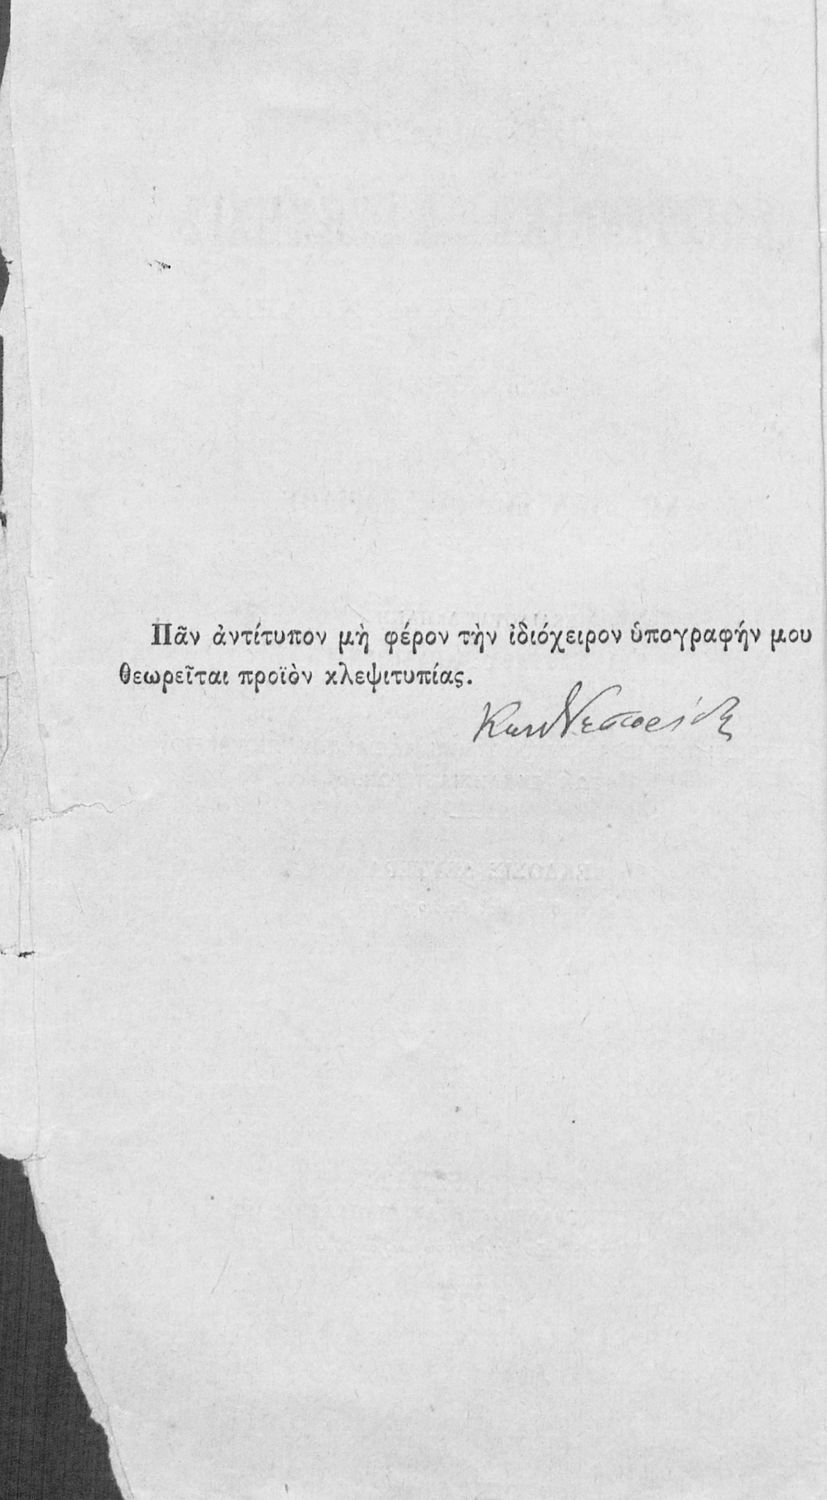 Πᾶν ἀντίτυπον μὴ φέρον τὴν ἰδιόχειρον ὑπογραφήν μου
θεωρεῖται προϊὸν κλεψιτυπίας.